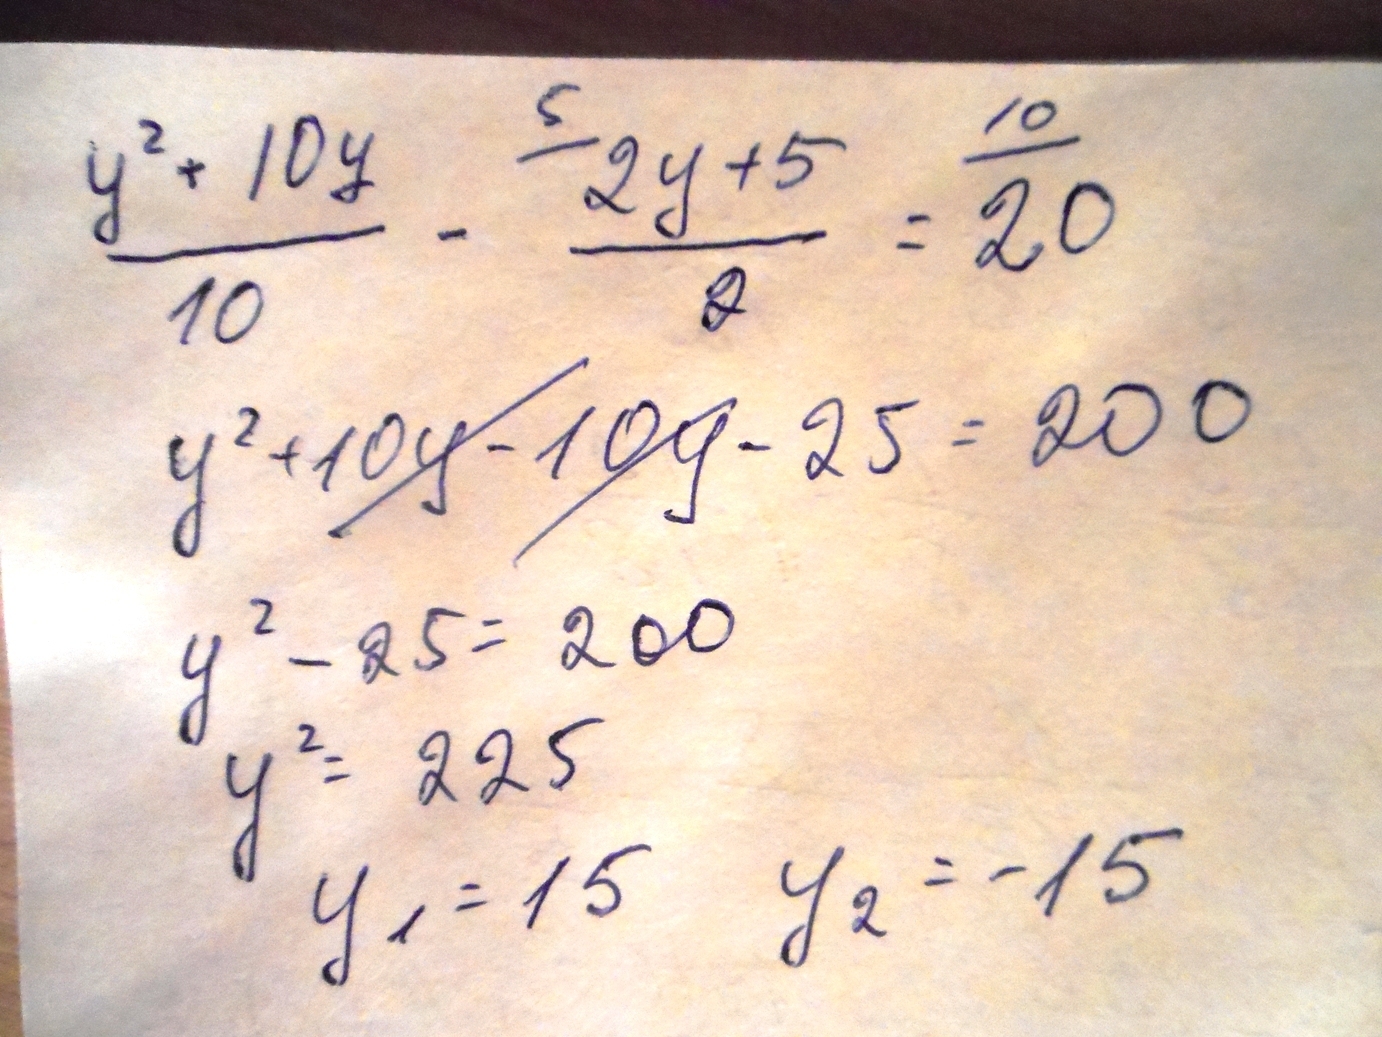 y² + 10y / 10 - 5/ 2y+5 / 2 = 10/ 20
y² + 10y - 10y - 25 = 200
y² - 25 = 200
y² = 225
y₁ = 15 y₂ = -15